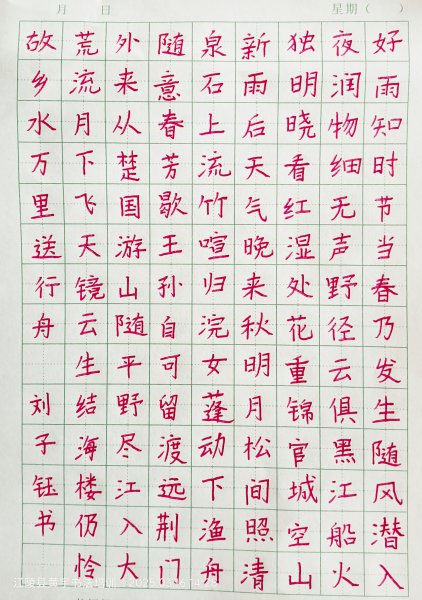 月　日　星期（　）
好雨知时节当春乃发生随风潜入
夜润物细无声野径云俱黑江船火
独明晓看红湿处花重锦官城空山
新雨后天气晚来秋明月松间照清
泉石上流竹喧归浣女蓬动下渔舟
随意春芳歇王孙自可留渡远荆门
外来从楚国游山随平野尽江入大
荒流月下飞天镜云生结海楼仍怜
故乡水万里送行舟　刘子钰书